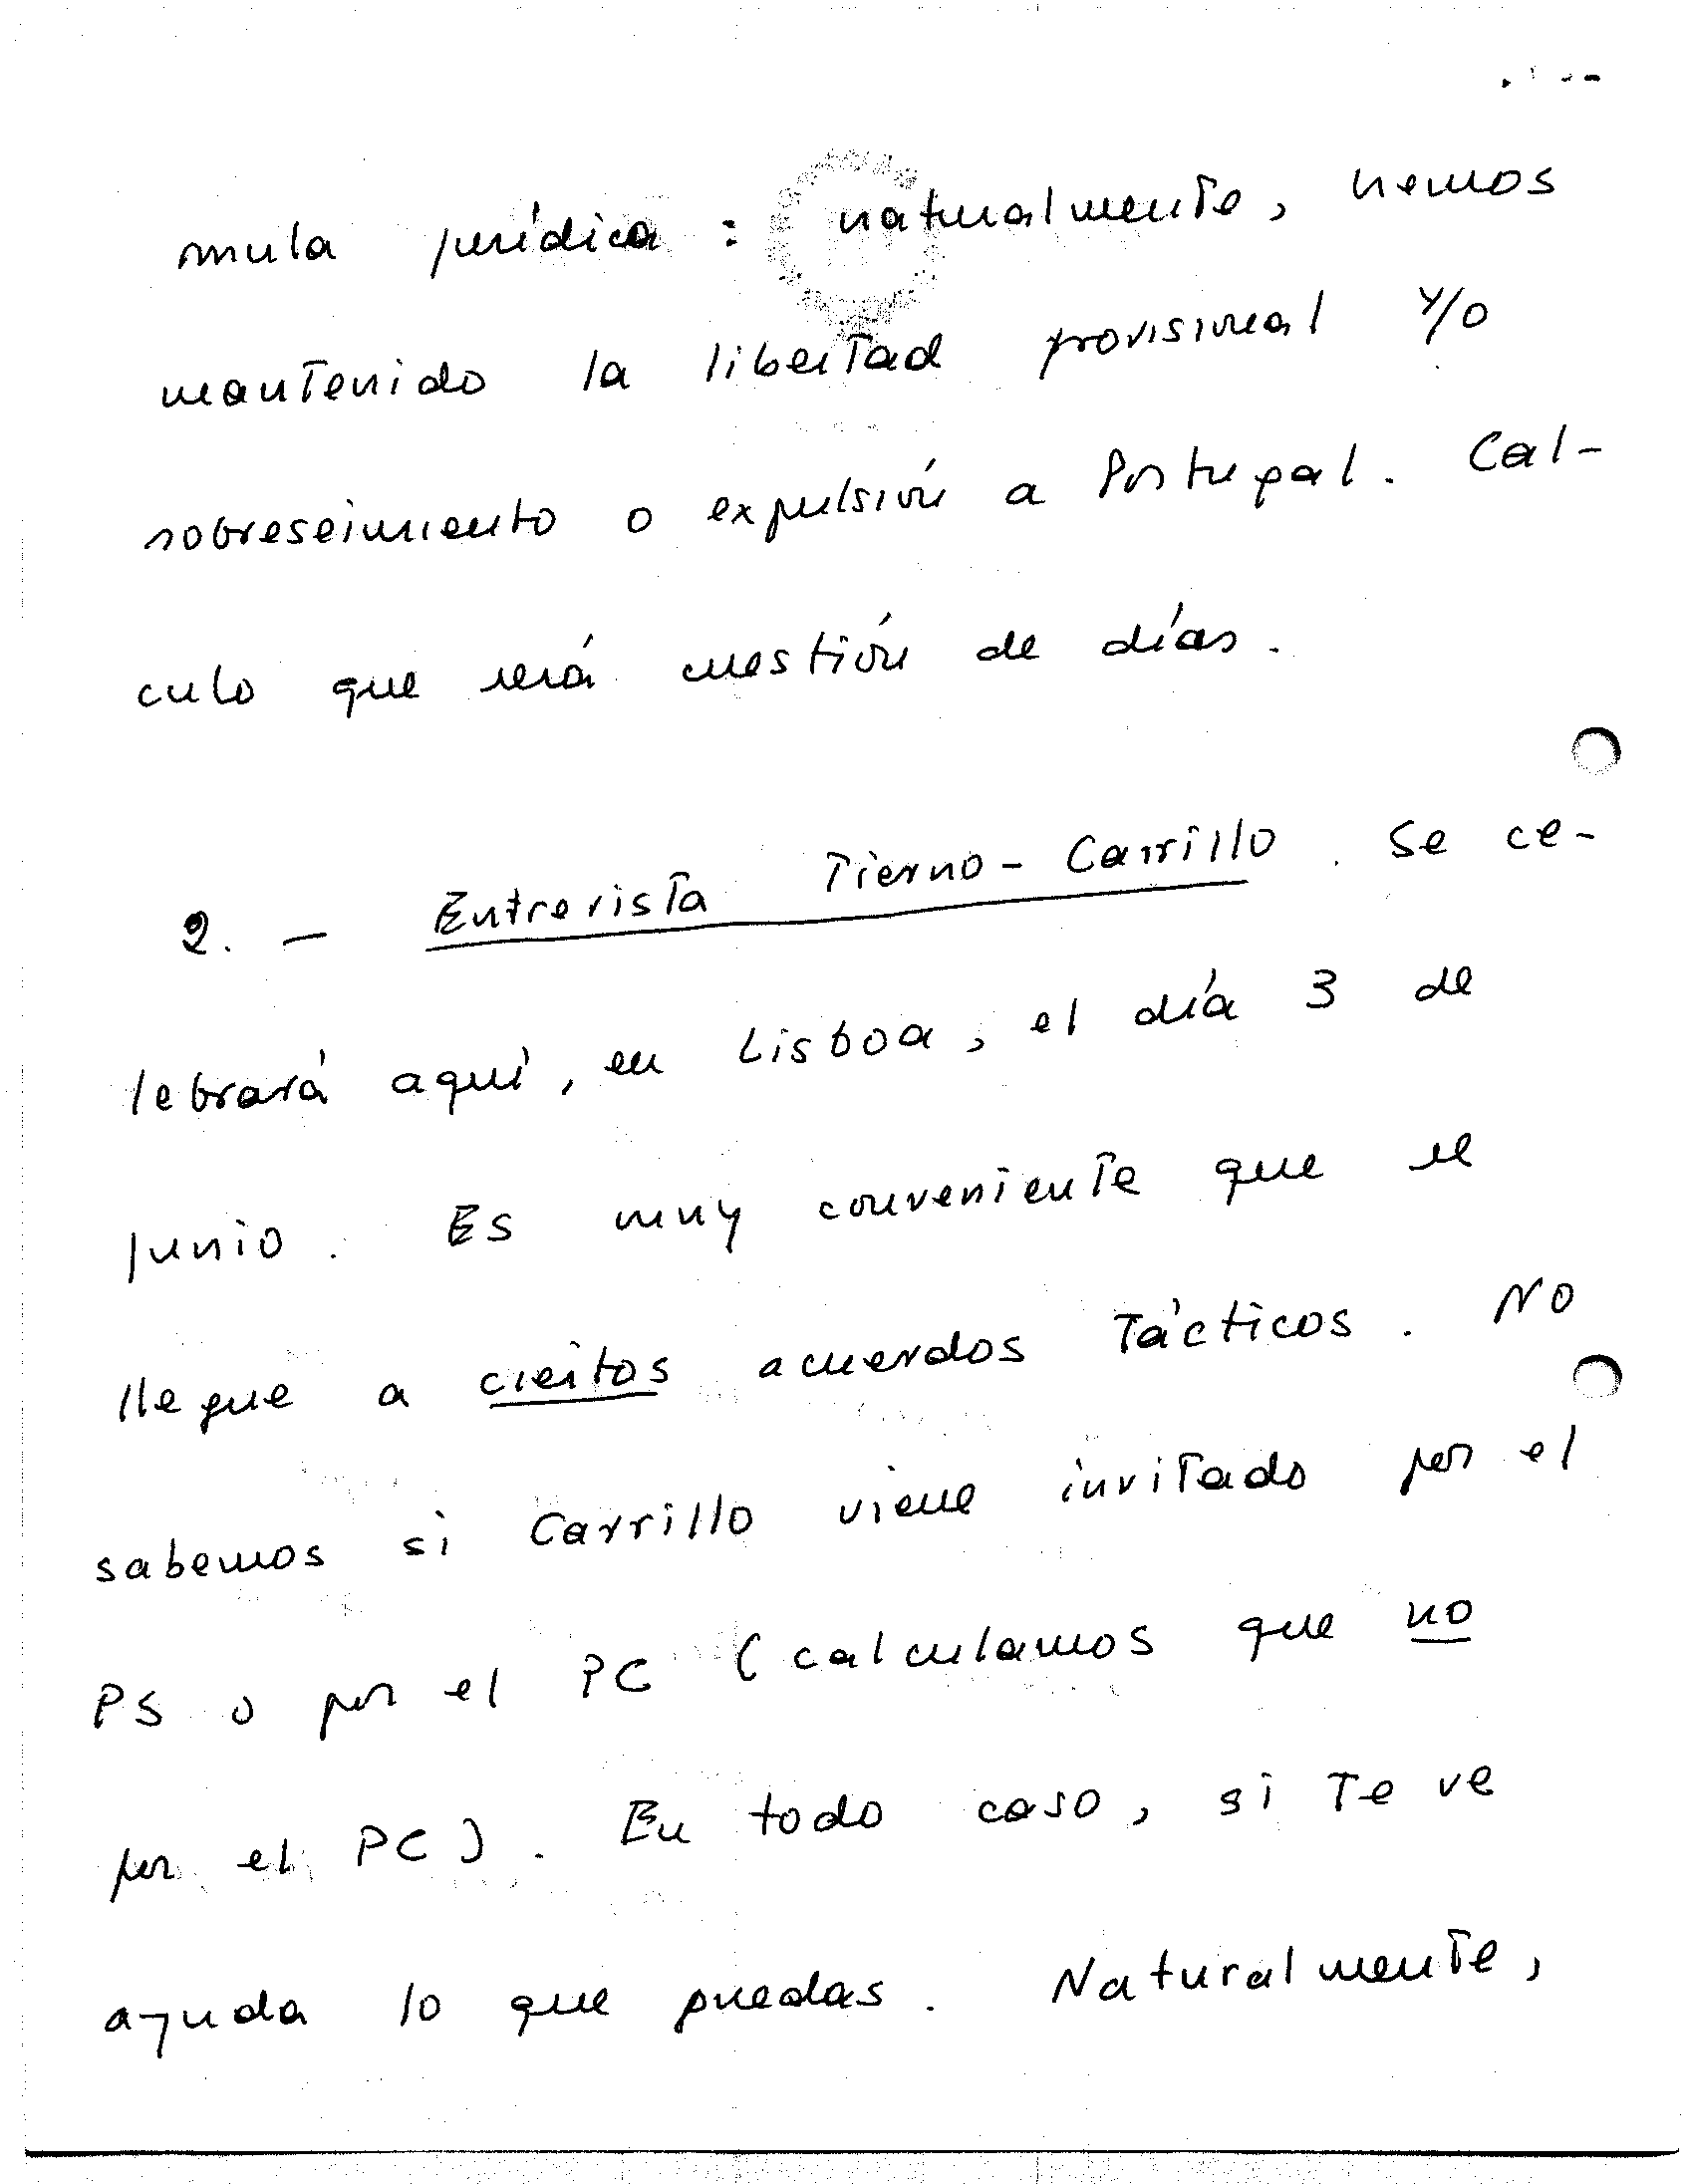 mula jurídica : naturalmente, hemos
mantenido la libertad provisional y/o
sobreseimiento o expulsión a Portugal. Cal-
culo que será cuestión de días.
2. — Entrevista Tierno - Carrillo. Se ce-
lebrará aquí, en Lisboa, el día 3 de
junio. Es muy conveniente que se
llegue a ciertos acuerdos tácticos. No
sabemos si Carrillo viene invitado por el
PS o por el PC (calculamos que no
por el PC). En todo caso, si te ve
ayuda lo que puedas. Naturalmente,